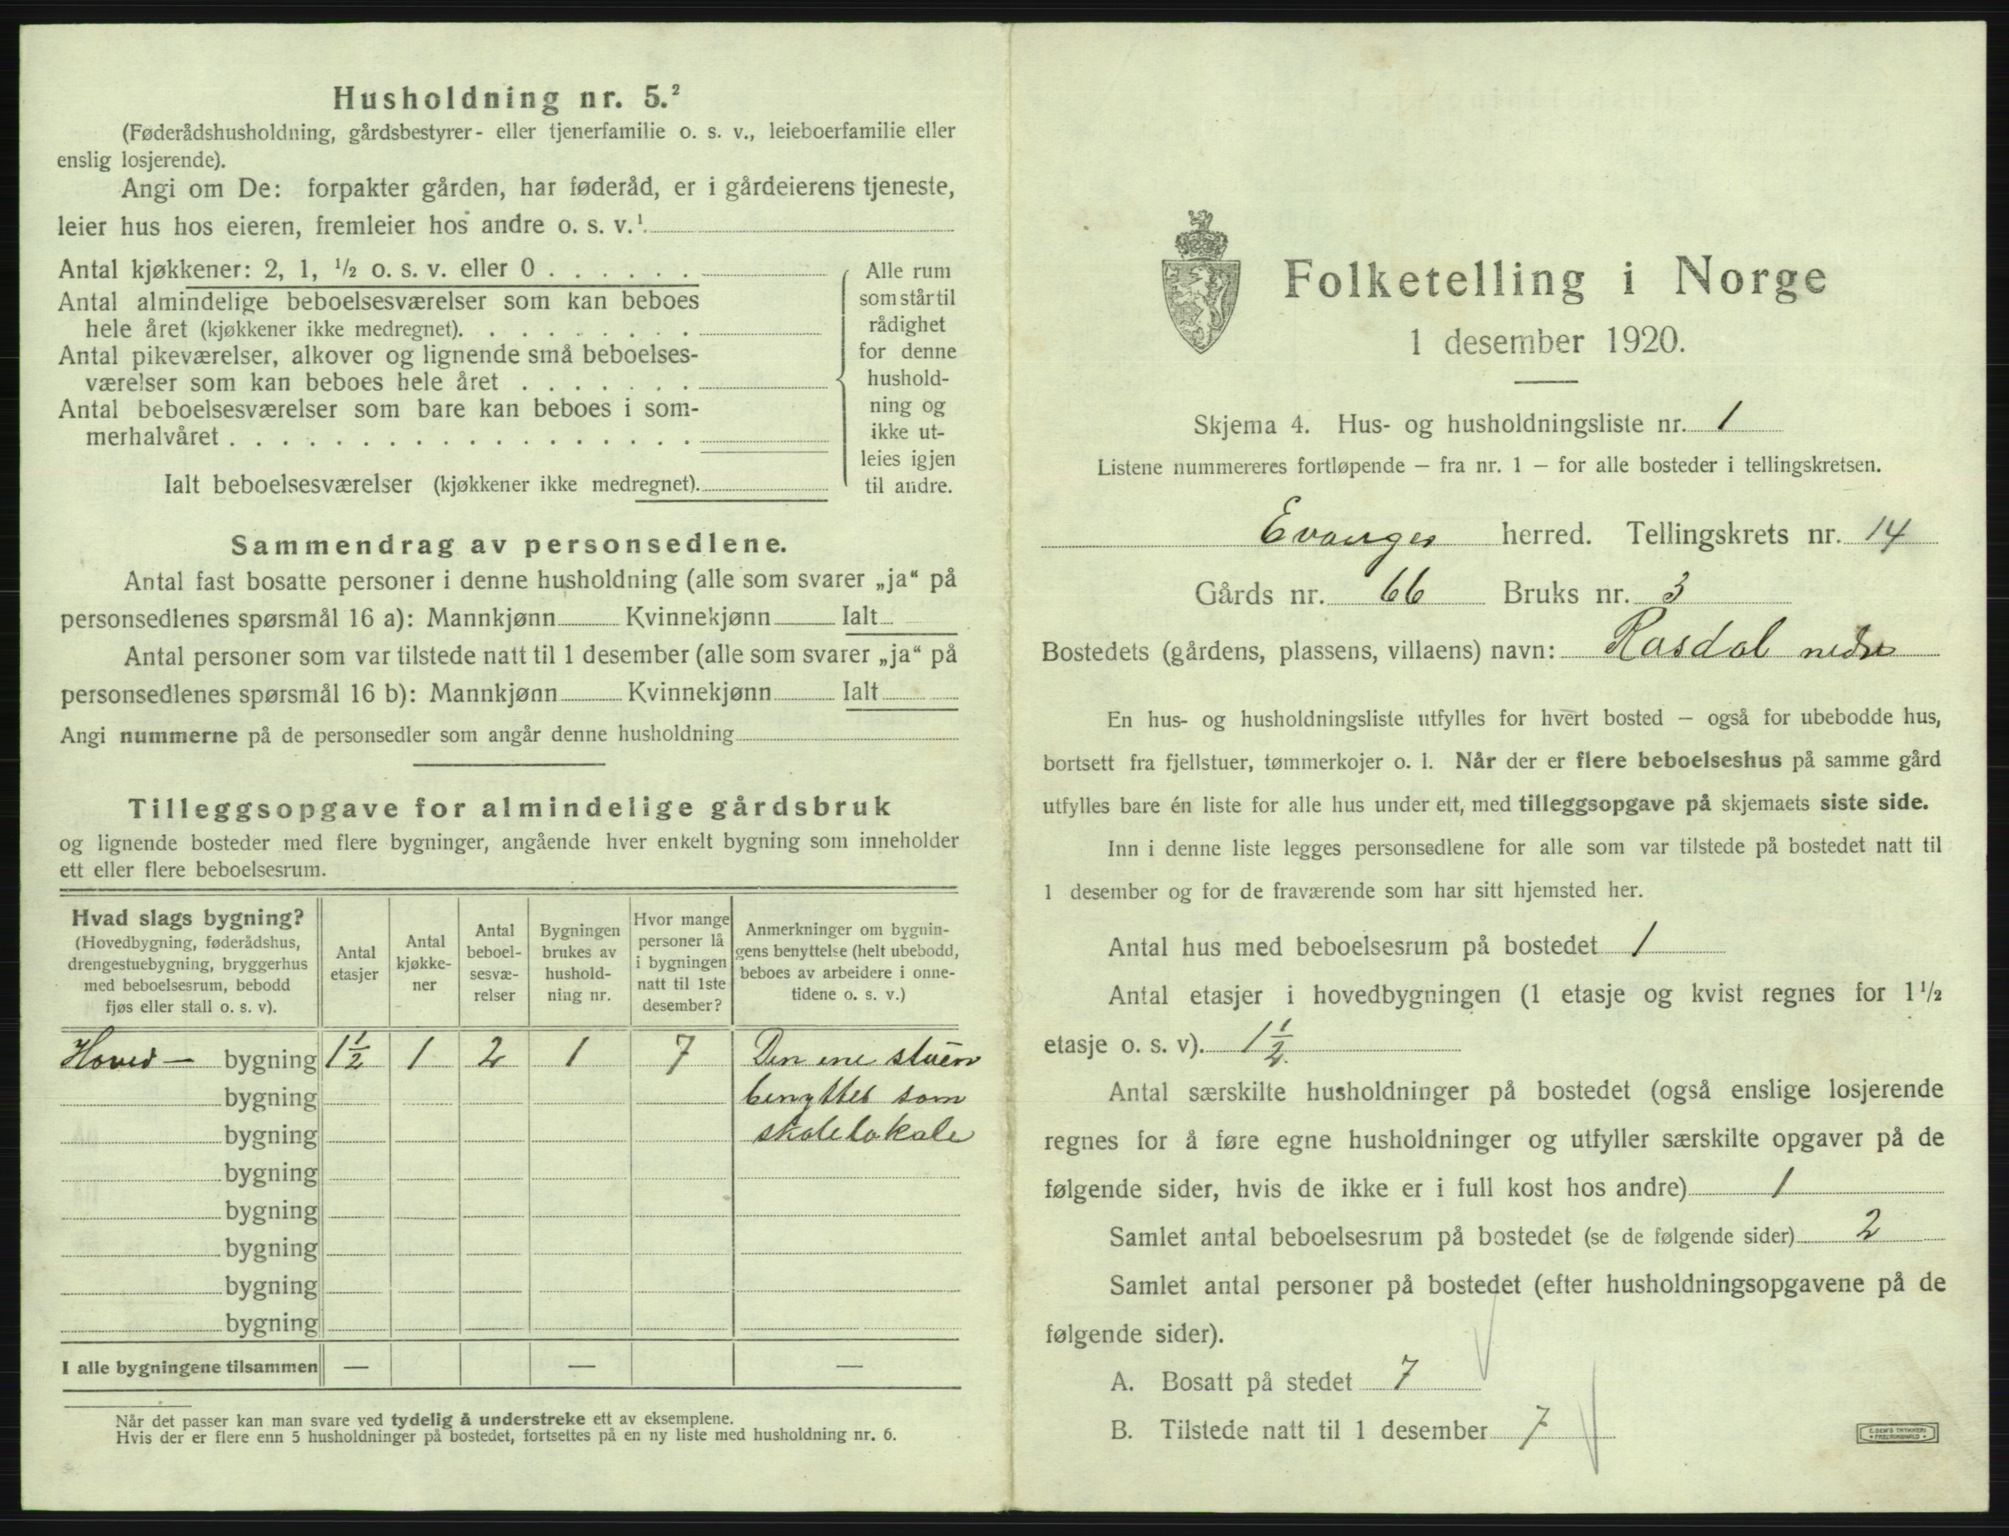 Husholdning nr. 5.²
(Føderådshusholdning, gårdsbestyrer- eller tjenerfamilie o. s. v., leieboerfamilie eller
enslig losjerende).
Angi om De: forpakter gården, har føderåd, er i gårdeierens tjeneste,
leier hus hos eieren, fremleier hos andre o. s. v.¹
Antal kjøkkener: 2, 1, ½ o. s. v. eller 0 . . . . . .
Antal almindelige beboelsesværelser som kan beboes
hele året (kjøkkener ikke medregnet). . . . . . . . .
Antal pikeværelser, alkover og lignende små beboelses-
værelser som kan beboes hele året . . . . . . .
Antal beboelsesværelser som bare kan beboes i som-
merhalvåret . . . . . . . . . . . . . . . . . .
Ialt beboelsesværelser (kjøkkener ikke medregnet).
Alle rum
som står til
rådighet
for denne
hushold-
ning og
ikke ut-
leies igjen
til andre.
Sammendrag av personsedlene.
Antal fast bosatte personer i denne husholdning (alle som svarer „ja“ på
personsedlenes spørsmål 16 a): Mannkjønn Kvinnekjønn Ialt
Antal personer som var tilstede natt til 1 desember (alle som svarer „ja“ på
personsedlenes spørsmål 16 b): Mannkjønn Kvinnekjønn Ialt
Angi nummerne på de personsedler som angår denne husholdning
Tilleggsopgave for almindelige gårdsbruk
og lignende bosteder med flere bygninger, angående hver enkelt bygning som inneholder
ett eller flere beboelsesrum.
Hvad slags bygning?
(Hovedbygning, føderådshus,
drengestuebygning, bryggerhus
med beboelsesrum, bebodd
fjøs eller stall o. s. v).
Antal
etasjer
Antal
kjøkke-
ner
Antal
beboel-
sesvæ-
relser
Bygningen
brukes av
hushold-
ning nr.
Hvor mange
personer lå
i bygningen
natt til 1ste
desember?
Anmerkninger om bygnin-
gens benyttelse (helt ubebodd,
beboes av arbeidere i onne-
tidene o. s. v.)
Hoved — bygning 1½ 1 2 1 7 Den ene stuen
bygning benyttes som
bygning skolelokale
bygning
bygning
bygning
bygning
bygning
I alle bygningene tilsammen — — —
Når det passer kan man svare ved tydelig å understreke ett av eksemplene.
Hvis der er flere enn 5 husholdninger på bostedet, fortsettes på en ny liste med husholdning nr. 6.
Folketelling i Norge
1 desember 1920.
Skjema 4. Hus- og husholdningsliste nr. 1
Listene nummereres fortløpende – fra nr. 1 – for alle bosteder i tellingskretsen.
Evanger herred. Tellingskrets nr. 14
Gårds nr. 66 Bruks nr. 3
Bostedets (gårdens, plassens, villaens) navn: Rasdal nedre
En hus- og husholdningsliste utfylles for hvert bosted – også for ubebodde hus,
bortsett fra fjellstuer, tømmerkojer o. l. Når der er flere beboelseshus på samme gård
utfylles bare én liste for alle hus under ett, med tilleggsopgave på skjemaets siste side.
Inn i denne liste legges personsedlene for alle som var tilstede på bostedet natt til
1 desember og for de fraværende som har sitt hjemsted her.
Antal hus med beboelsesrum på bostedet 1
Antal etasjer i hovedbygningen (1 etasje og kvist regnes for 1½
etasje o. s. v). 1½
Antal særskilte husholdninger på bostedet (også enslige losjerende
regnes for å føre egne husholdninger og utfyller særskilte opgaver på de
følgende sider, hvis de ikke er i full kost hos andre) 1
Samlet antal beboelsesrum på bostedet (se de følgende sider) 2
Samlet antal personer på bostedet (efter husholdningsopgavene på de
følgende sider).
A. Bosatt på stedet 7
B. Tilstede natt til 1 desember 7